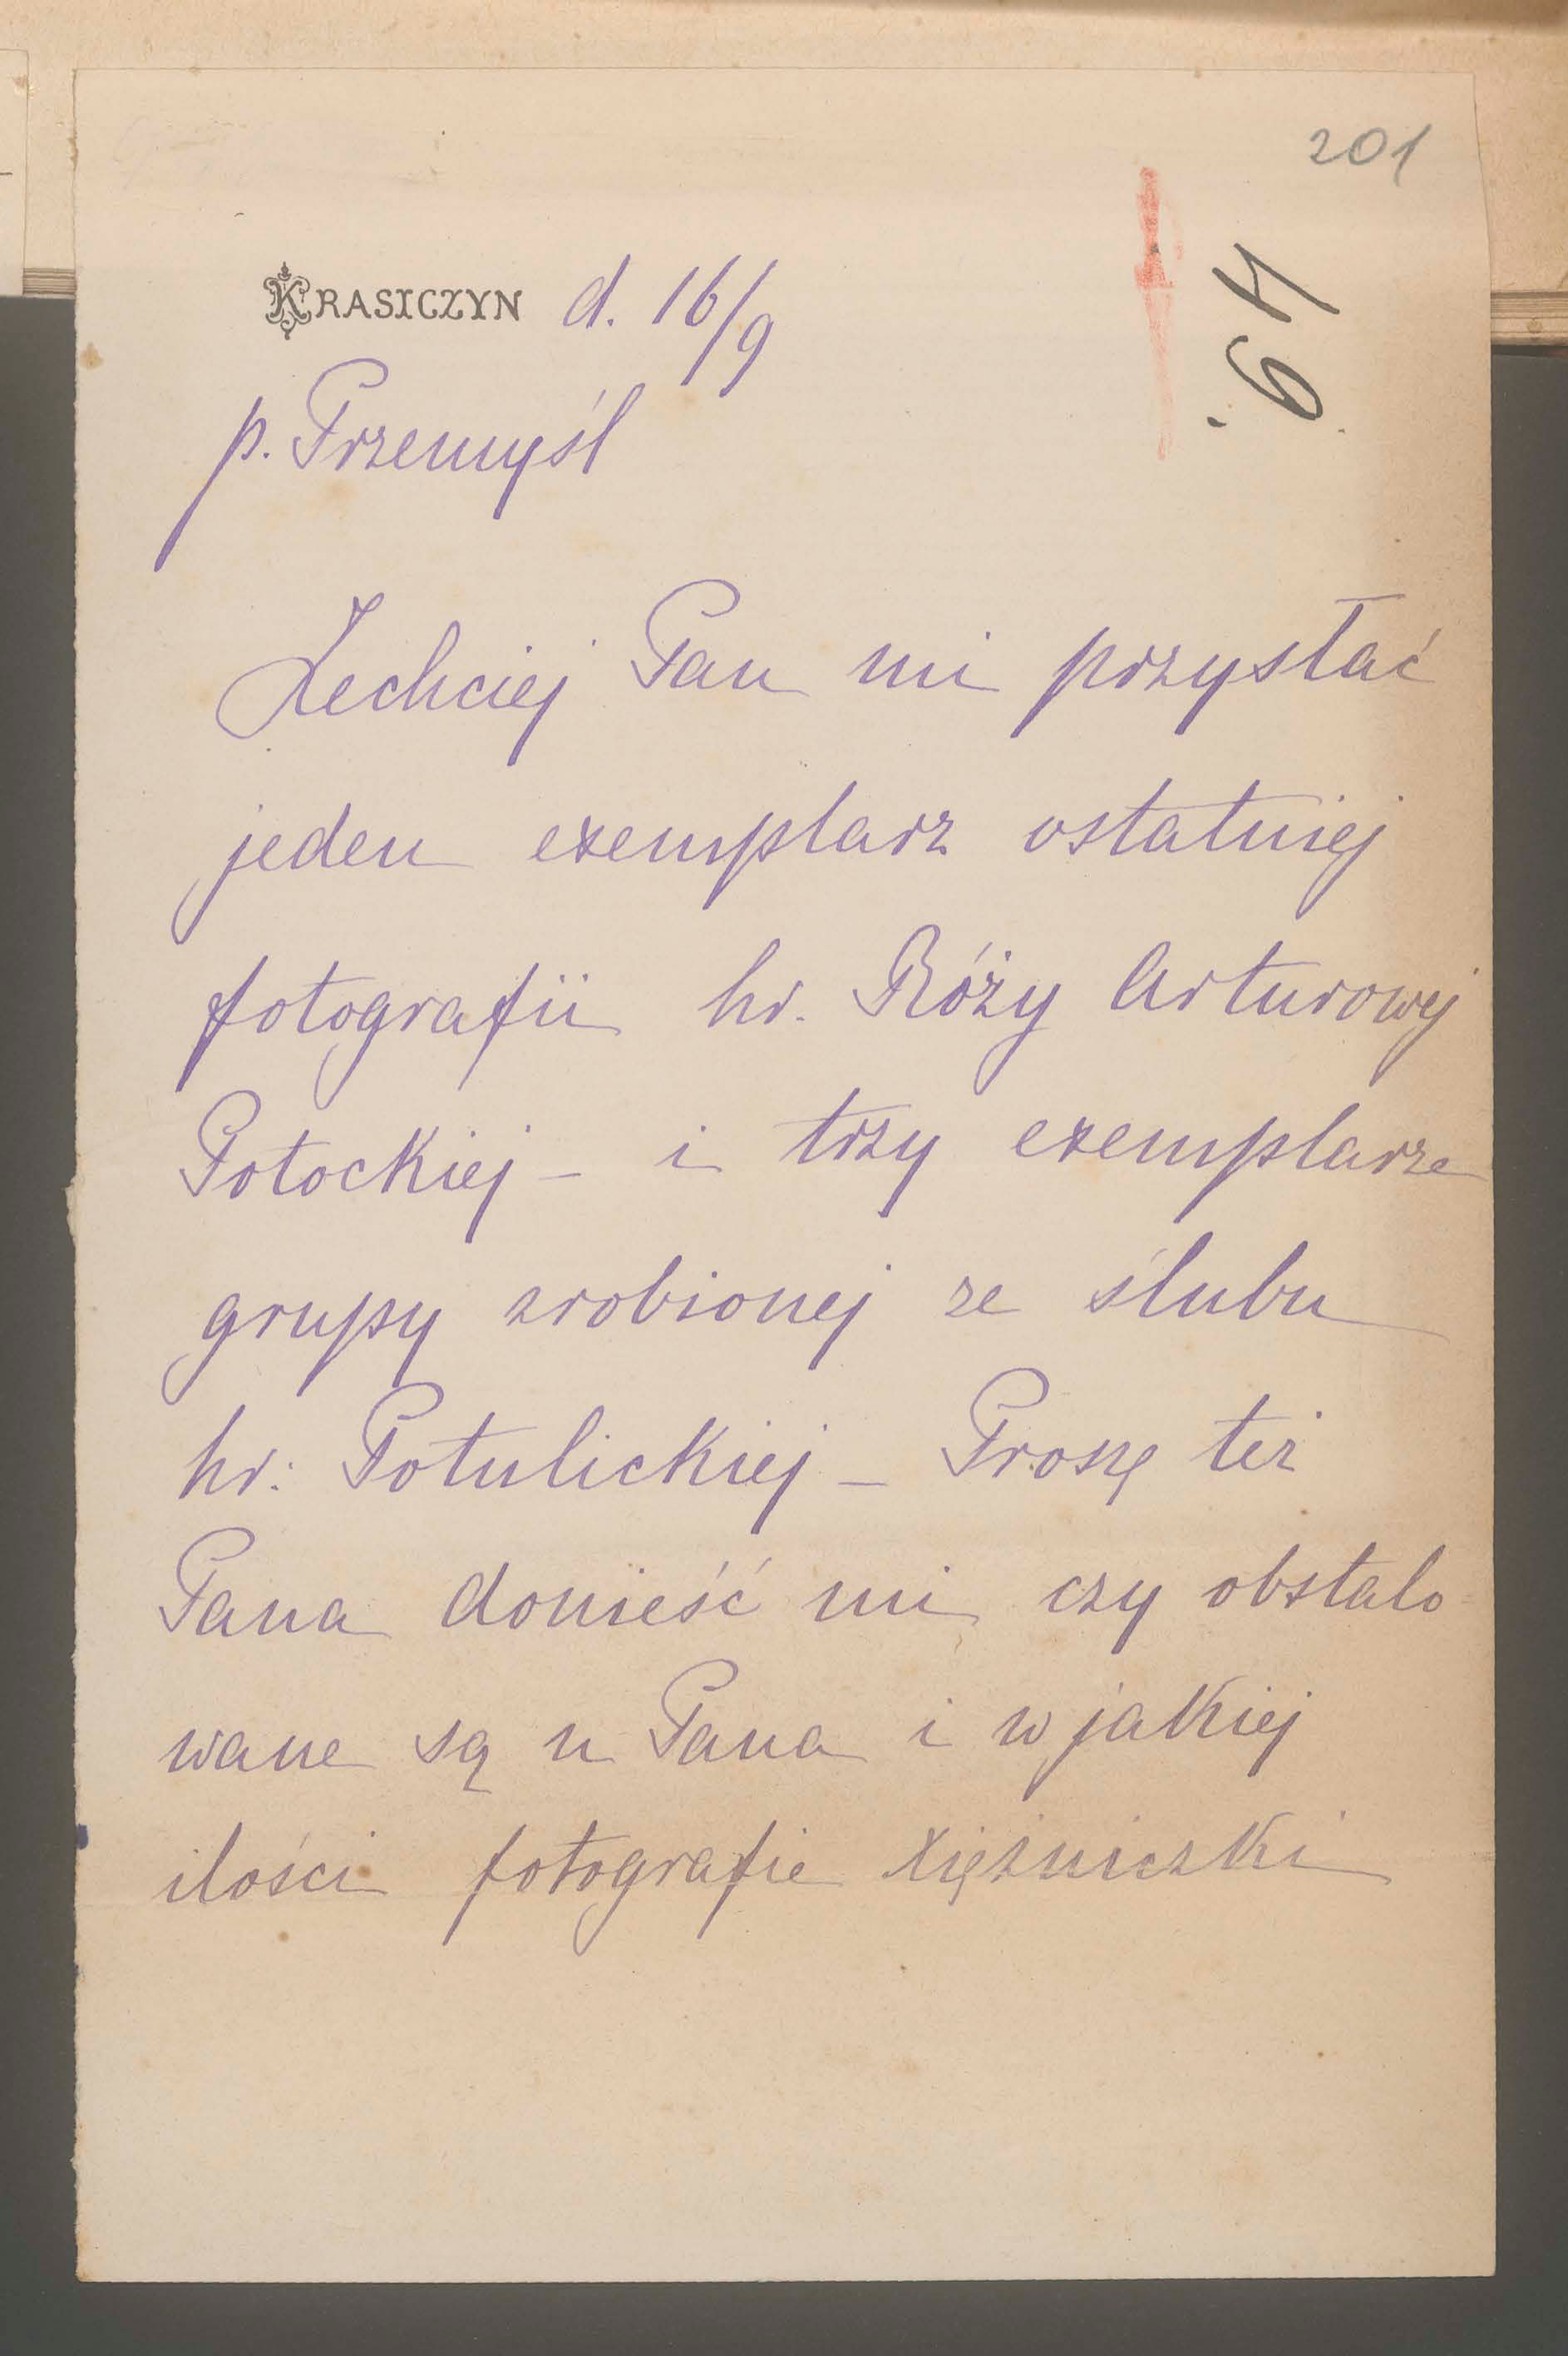 201
49.
KRASICZYN d. 16/9
p. Przemyśl
Zechciej Pan mi przysłać
jeden exemplarz ostatniej
fotografii hr. Róży Arturowej
Potockiej – i trzy exemplarze
grupy zrobionej ze ślubu
hr: Potulickiej – Proszę też
Pana donieść mi czy obstalo
wane są u Pana i w jakiej
ilości fotografie Xiężniczki